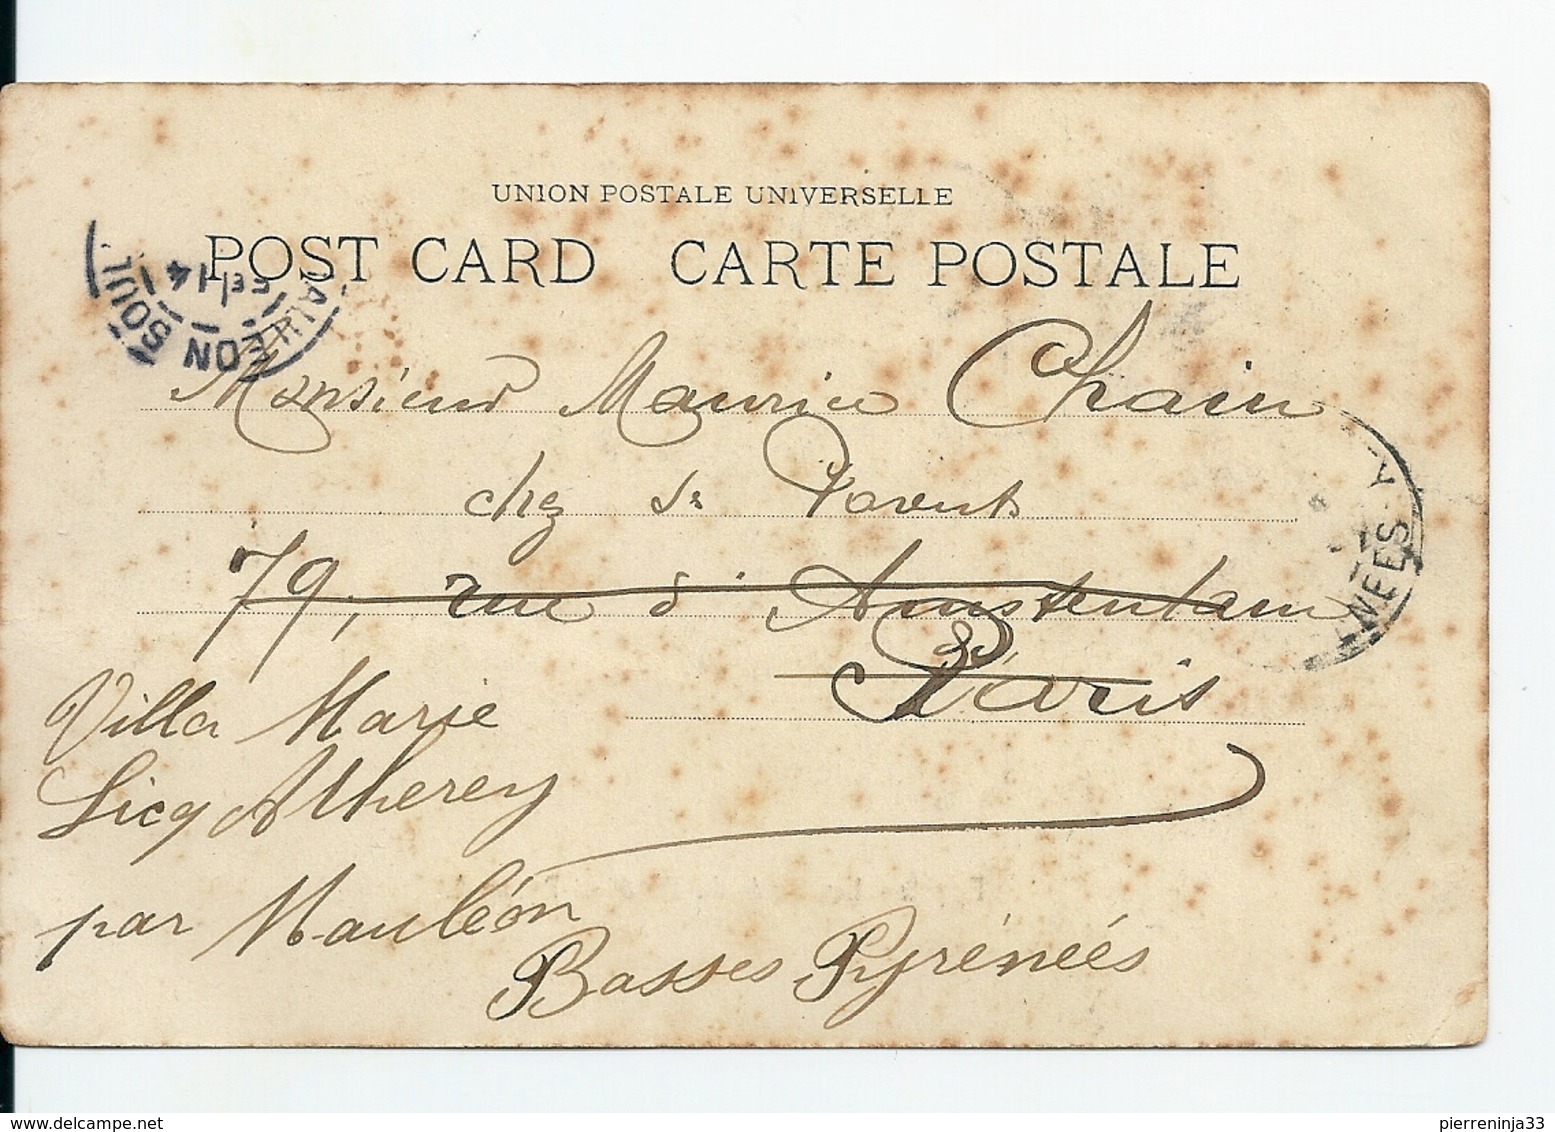 UNION POSTALE UNIVERSELLE
POST CARD CARTE POSTALE
Monsieur Maurice Chain
chez ses Parents
79, rue d'Amsterdam
Paris
Villa Marie
Licq Atherey
par Mauléon
Basses Pyrénées
ON SOUL
NEES
delcampe.net
pierreninja33